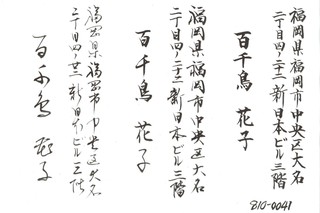 福岡県福岡市中央区大名
二丁目四ノ二十二新日本ビル三階
百千鳥 花子
福岡県福岡市中央区大名
二丁目四ノ二十二新日本ビル三階
百千鳥 花子
福岡県福岡市中央区大名
二丁目四ノ廿二新日本ビル三階
百千鳥 花子
810-0041